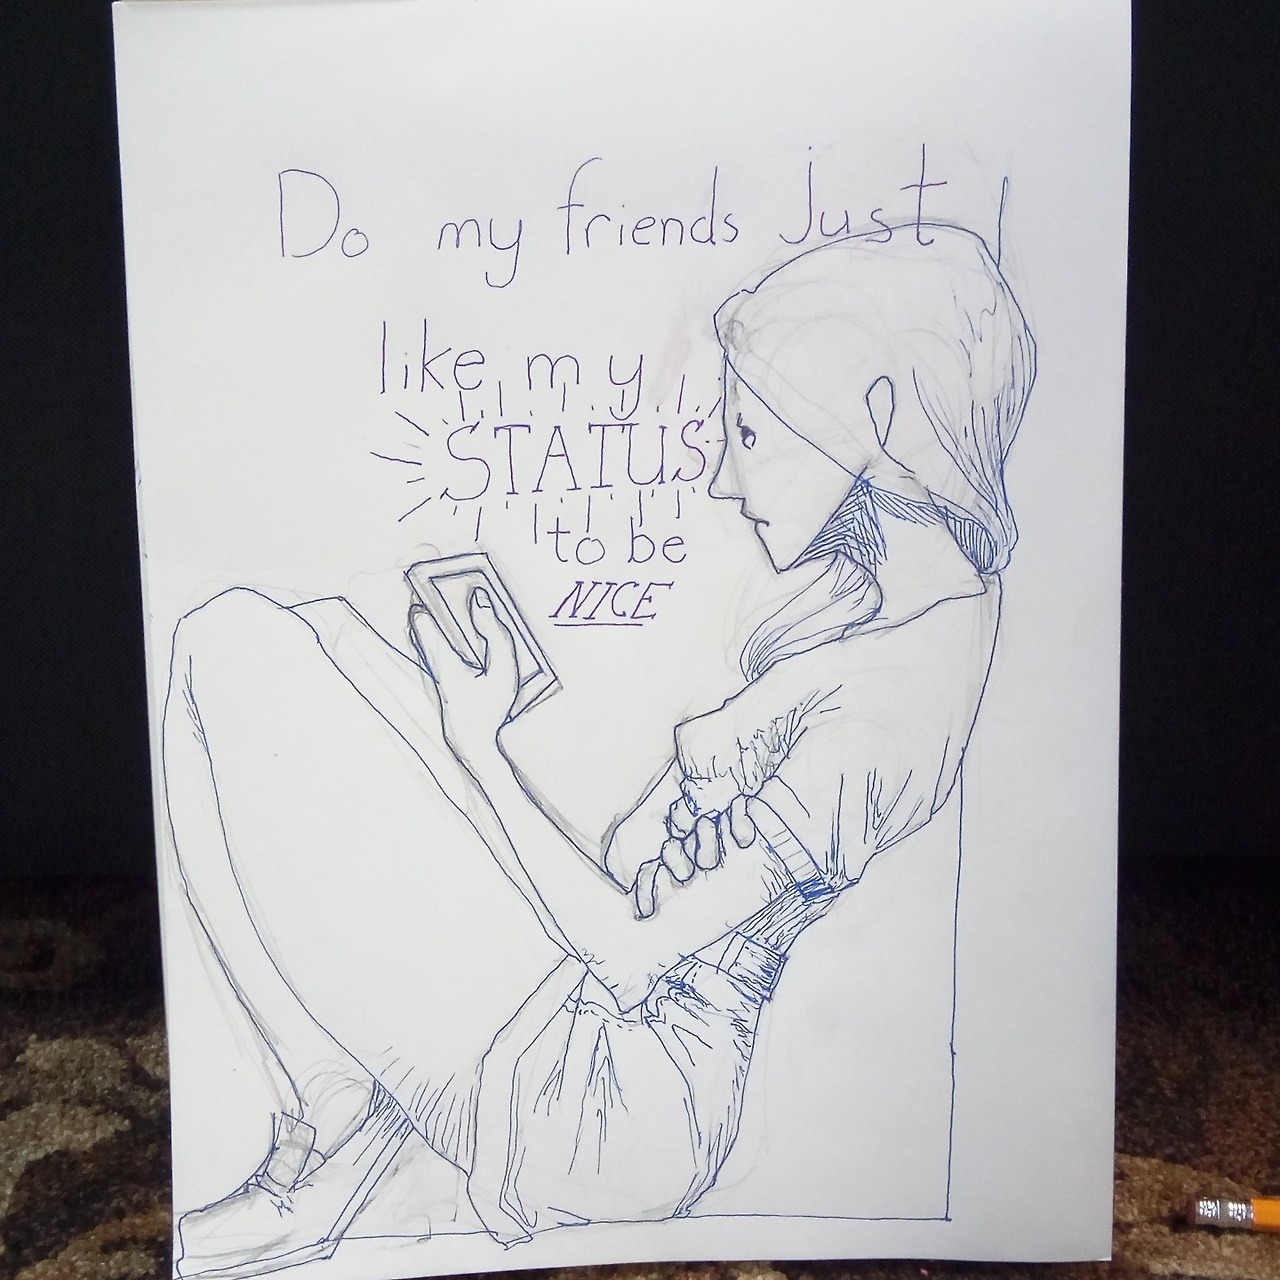 Do my friends just
like my
STATUS
to be
NICE